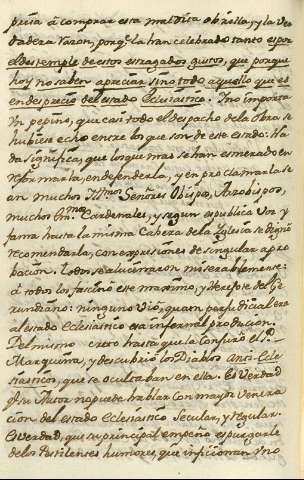 priessa à comprar esta maldita obrilla, y la ver
dadera razon, porqe. la han celebrado tanto es por
el destemple de estos estragados gustos, que porque
hoy no saben apreciar, sino todo aquello que es
en desprecio del estado Eclesiástico. Y no importa
un pepino, que casi todo el despacho de la obra se
hubiese echo entre los que son de este estado: Na
da significa, que los que mas se han esmerado en
reformarla, en defenderla, y en proclamarla se
an muchos Illmos. Señores Obispos, Arzobispos,
muchos Emos. Cardenales, y segun es publica voz y
fama hasta la misma Cabeza de la Iglesia se dignò
recomendarla, con expresiones de singular apro
bacion. Todos se alucinaron miserablemente:
à todos los fascinò este maximo, y Arcipreste de Ge
rundiano: ninguno viò, quan perjudicial era
al estado Eclesiastico esta infernal produccion.
Del mismo cierto hasta que la conjurò el P.
Marquina, y descubriò los Diablos Anti-Ecle
siasticos, que se ocultaban en ella. Es verdad
qe. su Autor no puede hablar con mayor venera
cion del estado Eclesiastico Secular, y regular.
Es verdad, que su principal empeño es purgarle
de los pestilenes humores, que inficionan, y no